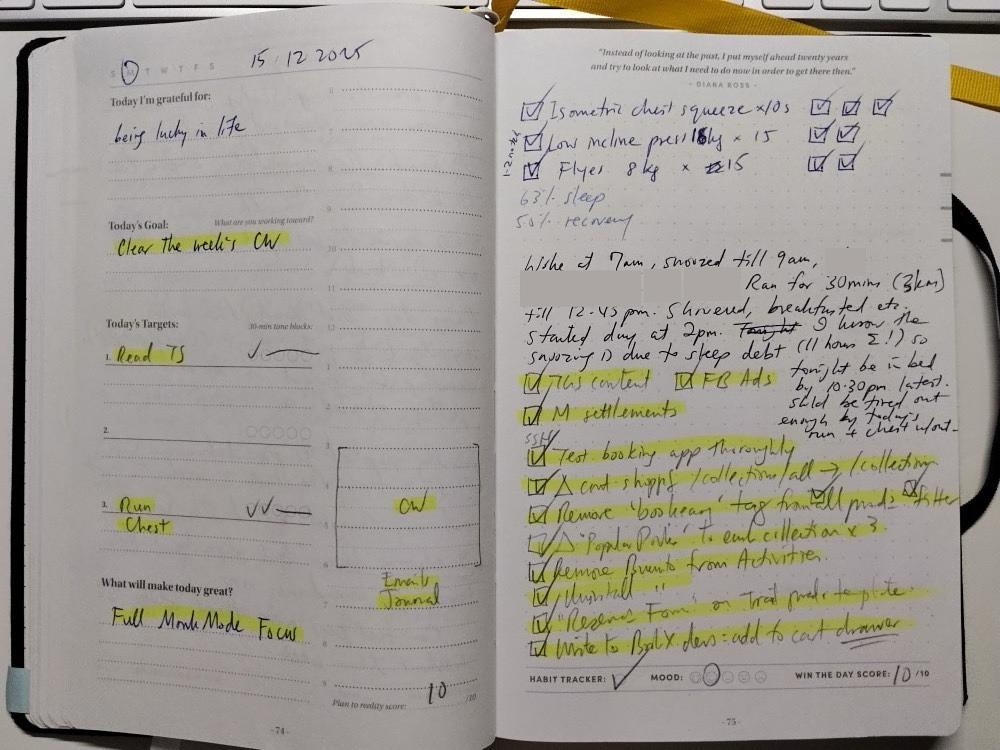 S M T W T F S 15.12 2025
Today I'm grateful for:
being lucky in life
Today's Goal: What are you working toward?
Clear the week's CW
Today's Targets: 30-min tone blocks:
1. Read TS
2.
3. Run
Chest
What will make today great?
Full Monk Mode Focus
6
7
8
9
10
11
12
1
2
3
4
CW
5
6
Emails
7
Journal
8
9
Plan to reality score: 10 /10
- 74 -
"Instead of looking at the past, I put myself ahead twenty years
and try to look at what I need to do now in order to get there then."
- DIANA ROSS -
Isometric chest squeeze x10s
Low incline press 18kg x 15
Flyes 8kg x 15
63% sleep
50% recovery
Woke at 7am, snoozed till 9am,
Ran for 30mins (3km)
till 12-45pm. Showered, breakfasted etc.
Started day at 2pm. I know the
snoozing is due to sleep debt (11 hours Σ!) so
tonight be in bed
by 10.30pm latest.
Shld be tired out
enough by today's
run + chest w/out-
content FB Ads
M settlements
Test booking app thoroughly
Δ cont shopping /collections/all → /collection
Remove 'bookeasy' tag from all prods filter
Δ 'Popular to each collection x 3
Remove from Activities.
"
"Reserve Form" on template.
Write to devs: add to cart drawer
HABIT TRACKER: MOOD: WIN THE DAY SCORE: 10 /10
- 75 -